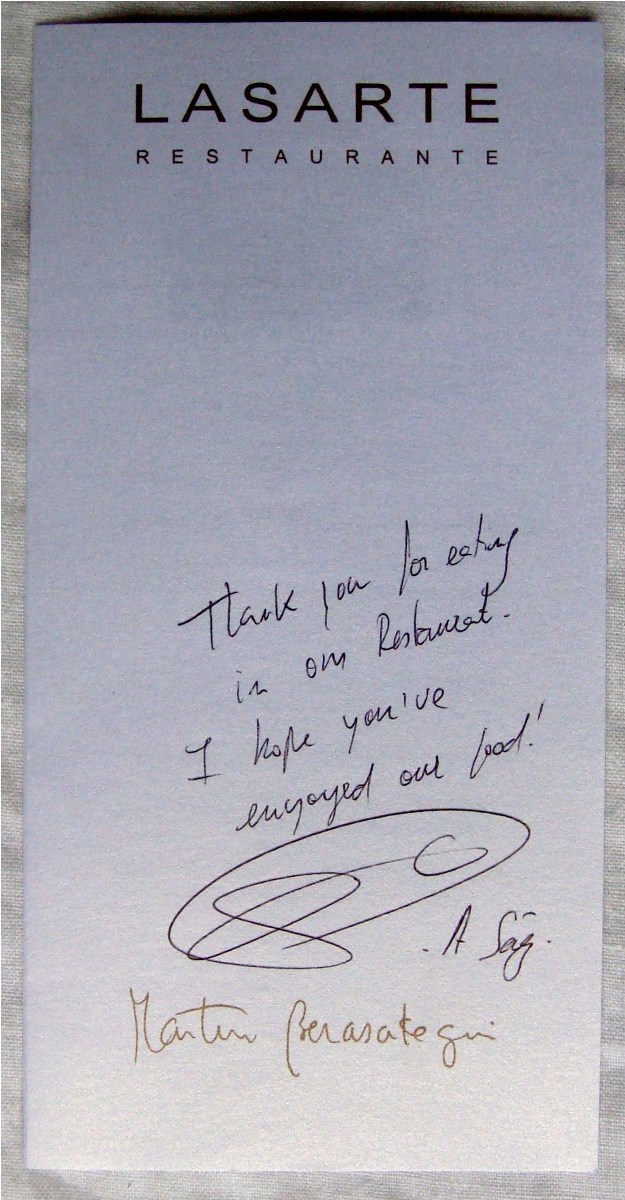 LASARTE
RESTAURANTE
Thank you for eating
in our Restaurant.
I hope you've
enjoyed our food!
Martín Berasategui